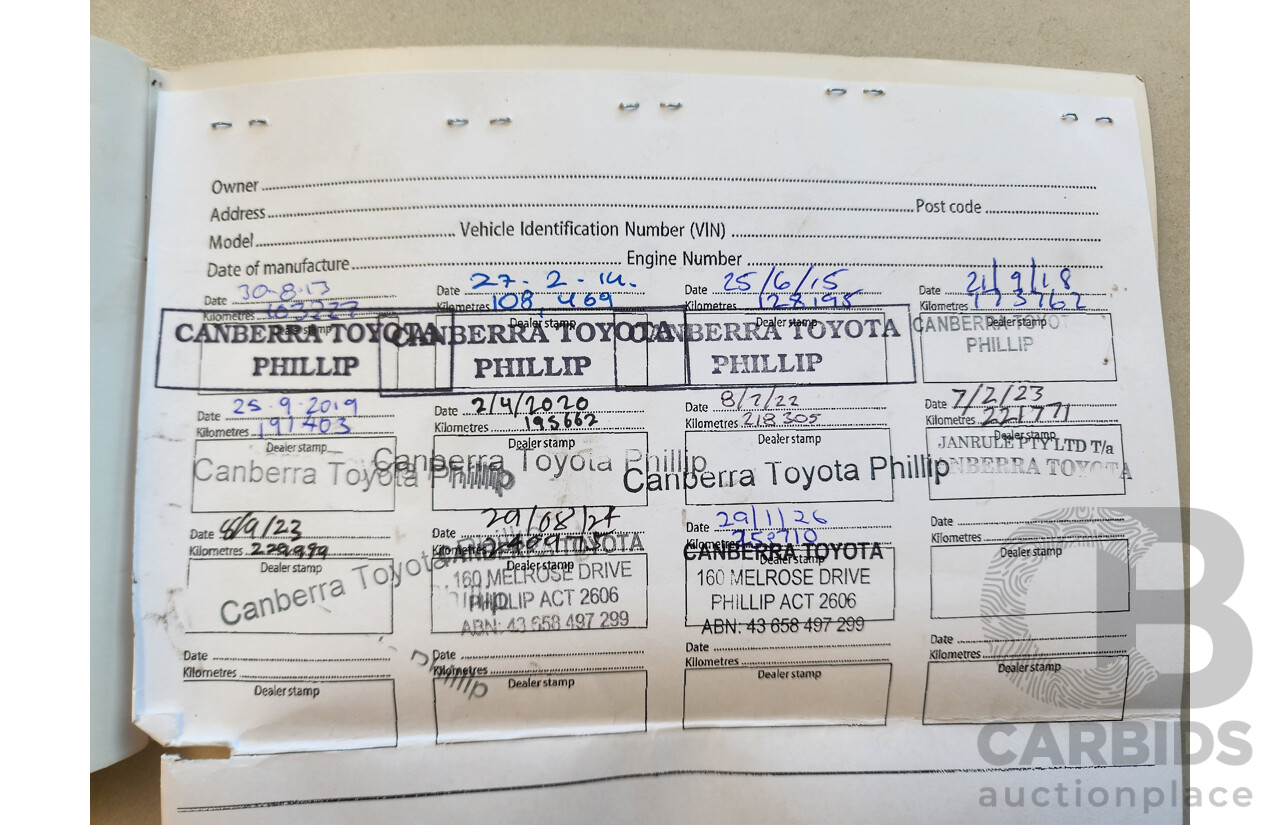 Owner
Address Post code
Model Vehicle Identification Number (VIN)
Date of manufacture Engine Number
Date 30-8-13
Kilometres
Dealer stamp
CANBERRA TOYOTA
PHILLIP
Date 27-2-14.
Kilometres 108,469
Dealer stamp
CANBERRA TOYOTA
PHILLIP
Date 25/6/15
Kilometres 128195
Dealer stamp
CANBERRA TOYOTA
PHILLIP
Date 21/9/18
Kilometres
Dealer stamp
CANBERRA TOYOT
PHILLIP
Date 25.9.2019
Kilometres 191403
Dealer stamp
Canberra Toyota Phillip
Date 2/4/2020
Kilometres 195662
Dealer stamp
Canberra Toyota Phillip
Date 8/7/22
Kilometres 218305
Dealer stamp
Canberra Toyota Phillip
Date 7/2/23
Kilometres 221771
Dealer stamp
JANRULE PTY LTD T/a
CANBERRA TOYOTA
Date
Kilometres 229999
Dealer stamp
Canberra Toyota Phillip
Date 29/08/24
Kilometres
Dealer stamp
160 MELROSE DRIVE
PHILLIP ACT 2606
ABN: 43 658 497 299
Date 29/1/26
Kilometres
Dealer stamp
CANBERRA TOYOTA
160 MELROSE DRIVE
PHILLIP ACT 2606
ABN: 43 658 497 299
Date
Kilometres
Dealer stamp
Date
Kilometres
Dealer stamp
Date
Kilometres
Dealer stamp
Phillip
Date
Kilometres
Dealer stamp
Date
Kilometres
Dealer stamp
CB
CARBIDS
auctionplace